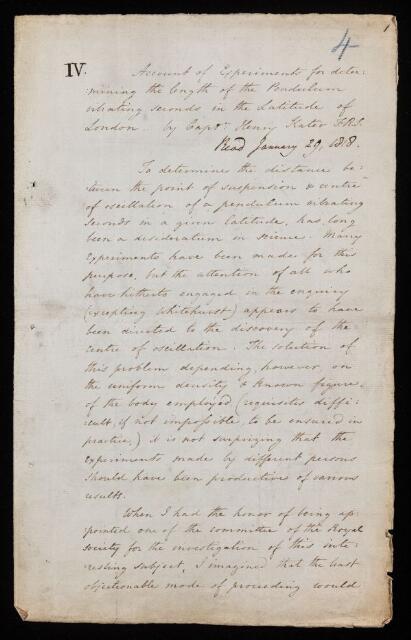 4
1
IV.
Account of Experiments for deter-
mining the length of the Pendulum
vibrating seconds in the Latitude of
London. by Capt. Henry Kater F.R.S.
Read January 29, 1818.
To determine the distance be-
tween the point of suspension & centre
of oscillation of a pendulum vibrating
seconds in a given latitude, has long
been a desideratum in science. Many
experiments have been made for this
purpose, but the attention of all who
have hitherto engaged in the enquiry
(excepting Whitehurst) appears to have
been directed to the discovery of the
centre of oscillation. The solution of
this problem depending, however, on
the uniform density & known figure
of the body employed (requisites diffi-
cult, if not impossible, to be ensured in
practice,) it is not surprizing that the
experiments made by different persons
should have been productive of various
results.
When I had the honor of being ap-
pointed one of the committee of the Royal
Society for the investigation of this inte-
resting subject, I imagined that the least
objectionable mode of proceeding would